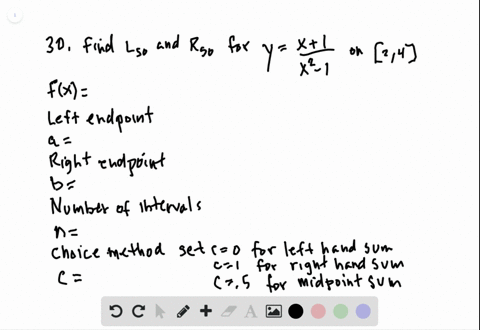 30. find L50 and R50 for y = x+1 / x²-1 on [2,4]
f(x)=
Left endpoint
a=
Right endpoint
b=
Number of intervals
n=
Choice method set c=0 for left hand sum
c=1 for right hand sum
c=
c=.5 for midpoint sum
A